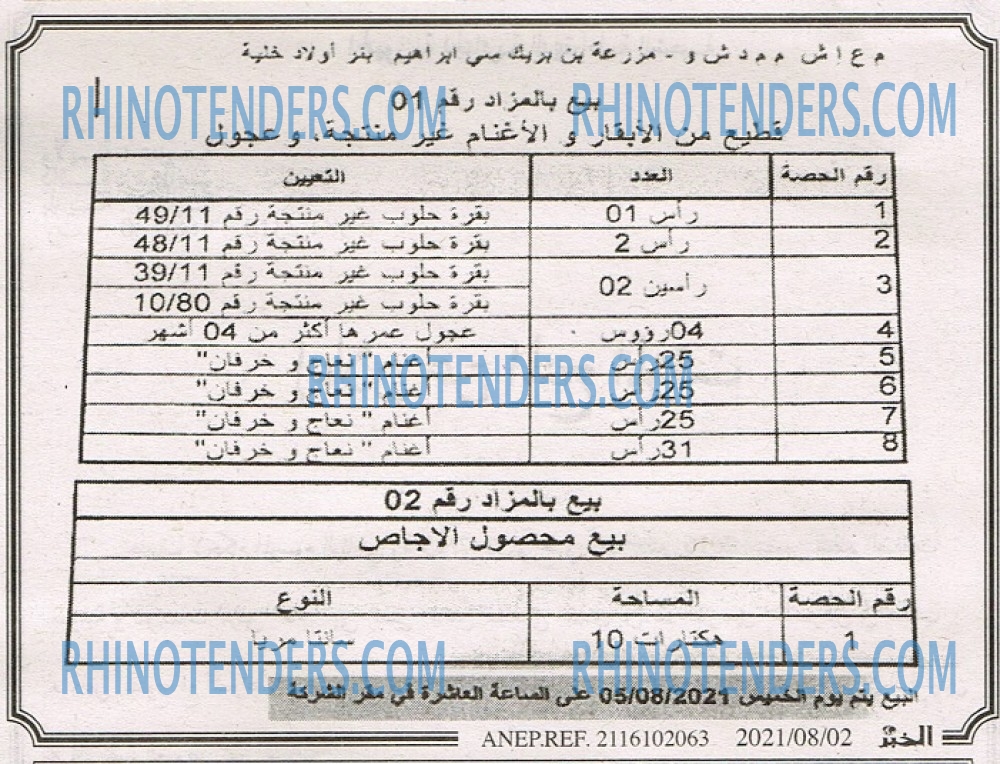 م ع إ ش م م د ش و - مزرعة بن بريك سي ابراهيم بئر أولاد خليفة
بيع بالمزاد رقم 01
قطيع من الأبقار و الأغنام غير منتجة، و عجول
رقم الحصة العدد التعيين
1 رأس 01 بقرة حلوب غير منتجة رقم 49/11
2 رأس 2 بقرة حلوب غير منتجة رقم 48/11
3 رأسين 02 بقرة حلوب غير منتجة رقم 39/11
بقرة حلوب غير منتجة رقم 10/80
4 04رؤوس عجول عمرها أكثر من 04 أشهر
5 25رأس أغنام "نعاج و خرفان"
6 25رأس أغنام "نعاج و خرفان"
7 25رأس أغنام "نعاج و خرفان"
8 31رأس أغنام "نعاج و خرفان"
بيع بالمزاد رقم 02
بيع محصول الاجاص
رقم الحصة المساحة النوع
1 هكتارات 10 سانتا مريا
البيع يتم يوم الخميس 05/08/2021 على الساعة العاشرة في مقر الشركة
الخبر 2021/08/02 ANEP.REF. 2116102063
RHINOTENDERS.COM RHINOTENDERS.COM
RHINOTENDERS.COM
RHINOTENDERS.COM RHINOTENDERS.COM